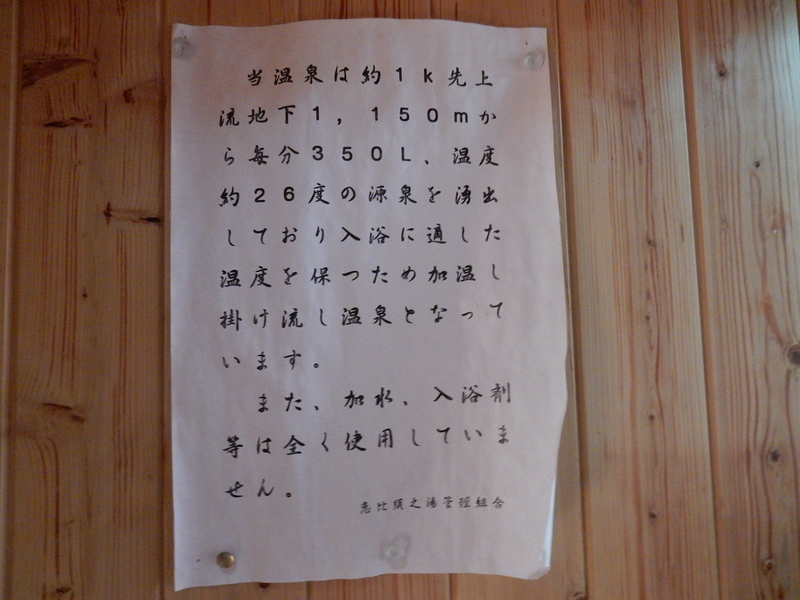 当温泉は約1k先上
流地下1,150mか
ら毎分350L、温度
約26度の源泉を湧出
しており入浴に適した
温度を保つため加温し
掛け流し温泉となって
います。
また、加水、入浴剤
等は全く使用していま
せん。
恵比須之湯管理組合